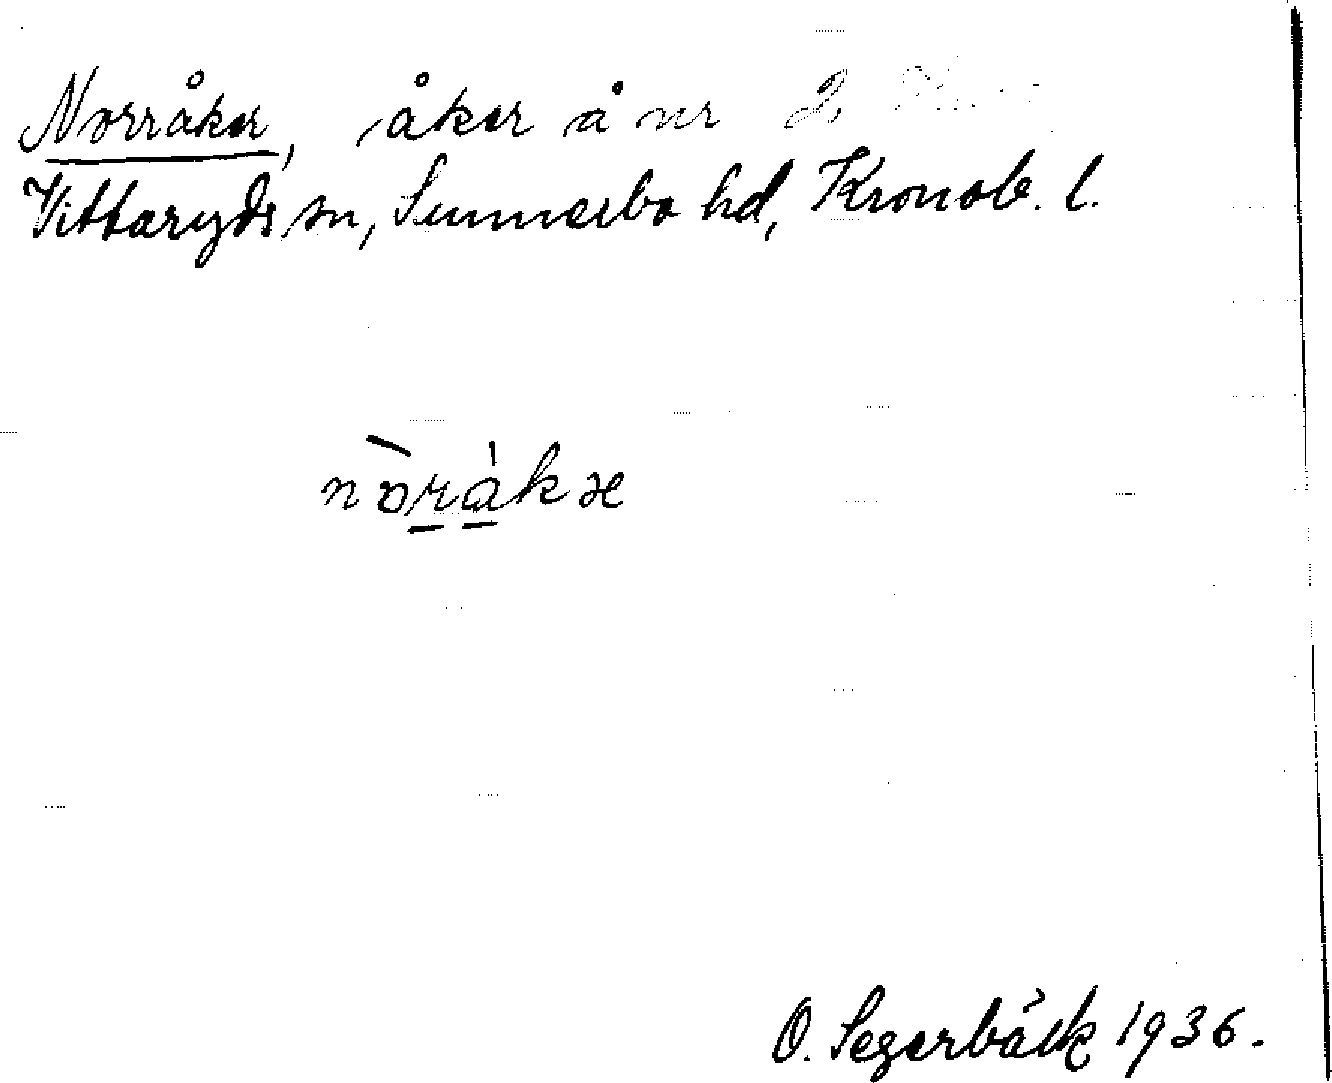 Norråker, åker å nr 2,
Vittaryds sn, Sunnerbo hd, Kronob. l.
nòråkæ
O. Segerbäck 1936.